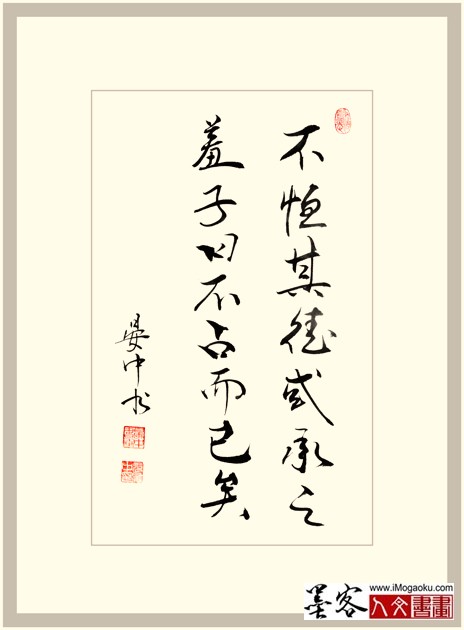 不恒其德或承之
羞子曰不占而已矣
晏中书
墨客
www.iMogaoku.com
人文書畫